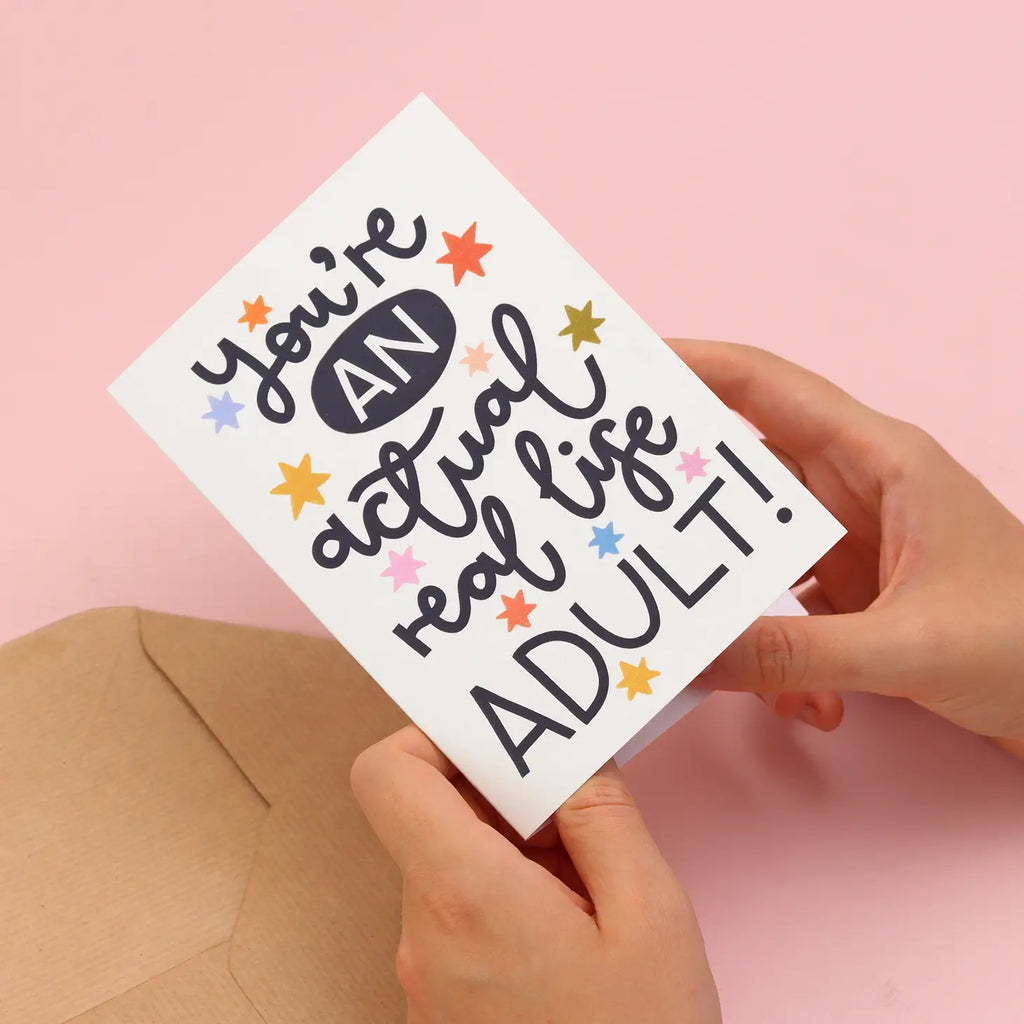 You're
AN
actual
real life
ADULT!